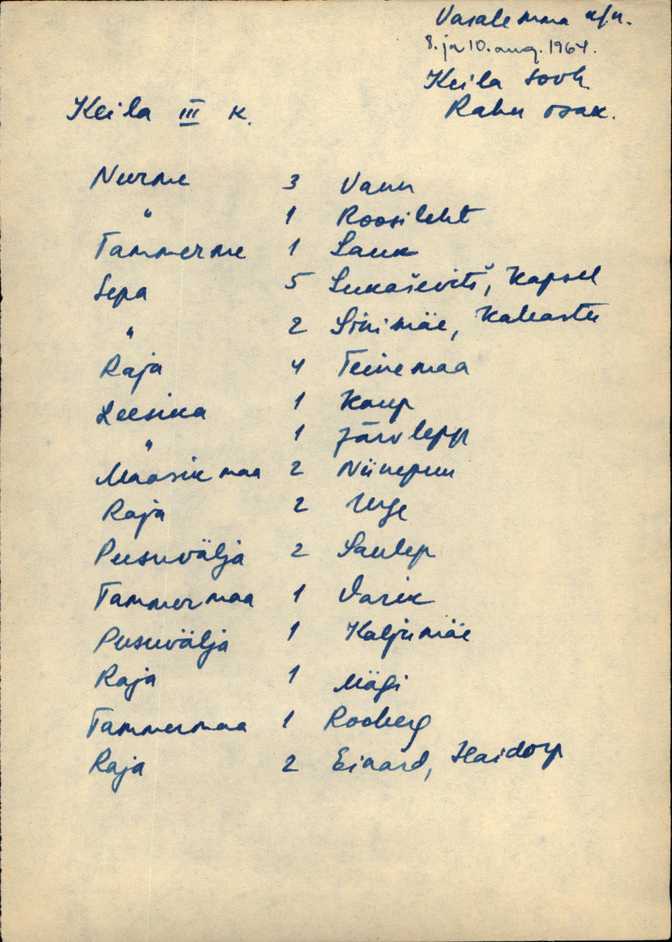 Vasalemma a/n.
8. ja 10. aug. 1964.
Keila sovh.
Rahu osak.
Keila III k.
Nurme 3 Vanu
" 1 Roosileht
Tammerme 1 Sauk
Sepa 5 Lukaševitš, Kapsel
" 2 Sinimäe, Kaheastu
Raja 4 Teinemaa
Leesika 1 Kaup
" 1 Järvlepp
Maasikmaa 2 Niinepuu
Raja 2 Urge
Pusuvälja 2 Saulep
Tammermaa 1 Varik
Pusuvälja 1 Kaljumäe
Raja 1 Mägi
Tammermaa 1 Rooberg
Raja 2 Einard, Haidorp